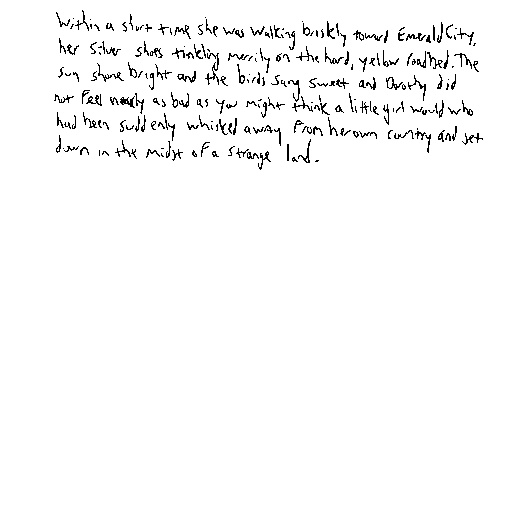 Within a short time she was walking briskly toward Emerald City,
her Silver shoes tinkling merrily on the hard, yellow roadbed. The
sun shone bright and the birds sang sweet and Dorothy did
not feel nearly as bad as you might think a little girl would who
had been suddenly whisked away from her own country and set
down in the midst of a strange land.